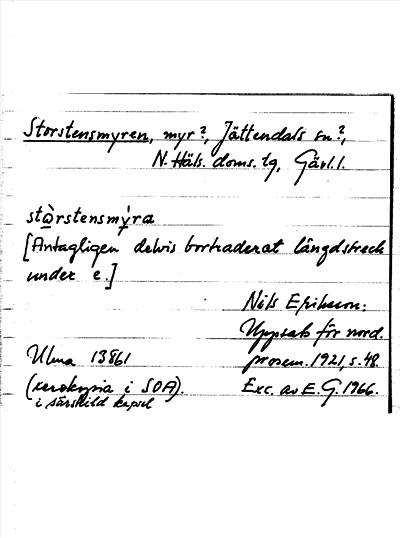 Storstensmyren, myr?, Jättendals sn?,
N. Häls. doms. tg, Gävl. l.
stòrstensmỳra
[Antagligen delvis bortraderat längdstreck
under e.]
Nils Eriksson:
Uppsats för nord.
Ulma 13861 prosem. 1921, s. 48.
(xerokopia i SOA). Exc. av E. G. 1966.
i särskild kapsel